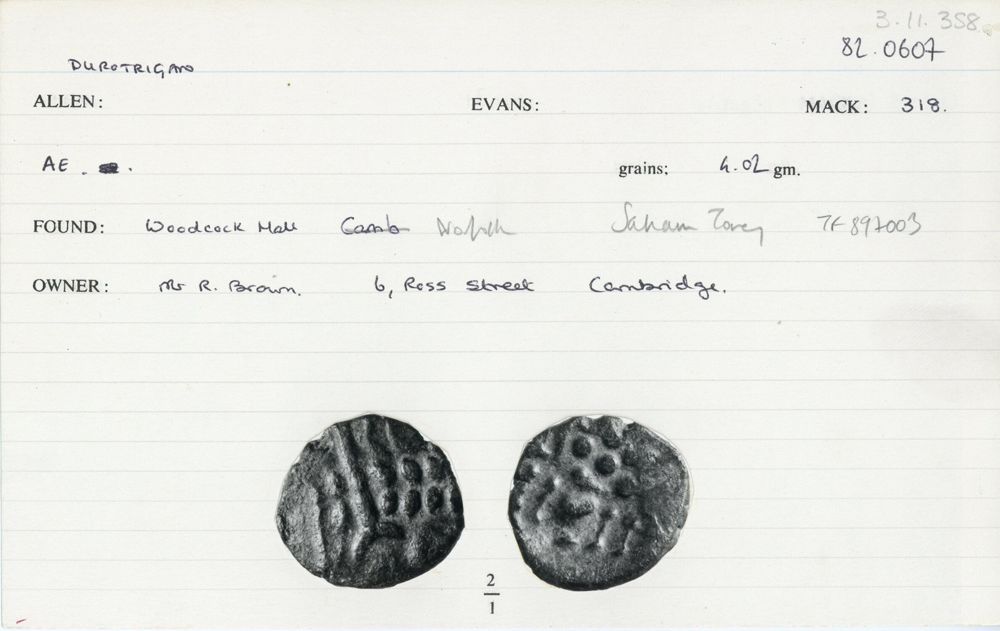 3.11.358
82.0607
DUROTRIGAN
ALLEN: EVANS: MACK: 318.
AE . . grains: 4.02 gm.
FOUND: Woodcock Hall Camb Norfolk Saham Toney TF 897003
OWNER: Mr R. Brown. 6, Ross Street Cambridge.
2
1